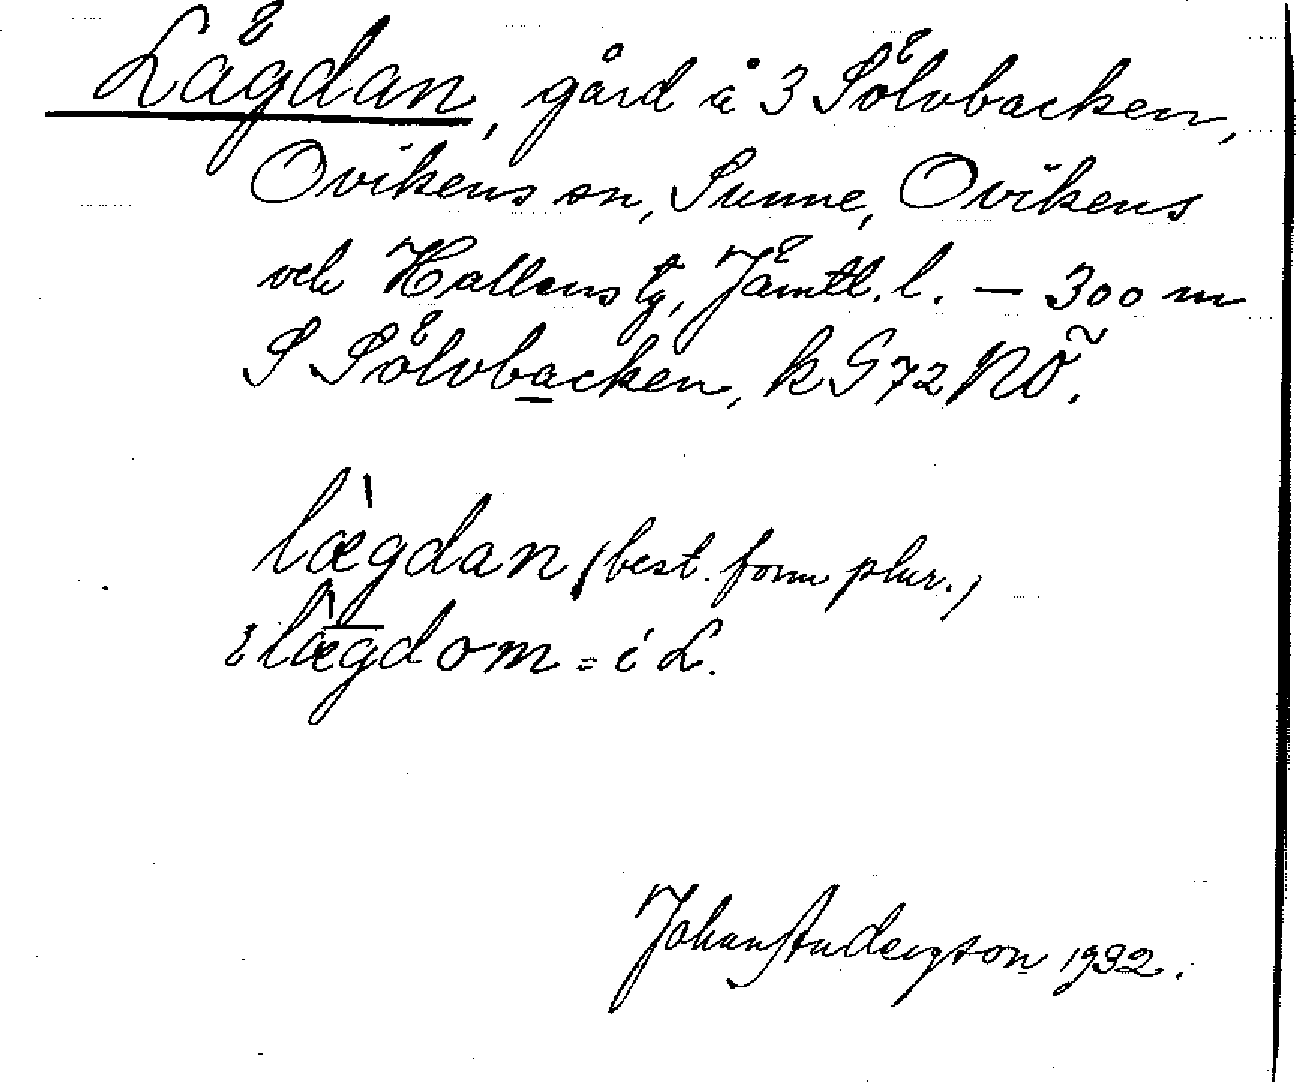 Lägdan, gård å 3 Sölvbacken,
Ovikens sn, Sunne, Ovikens
och Hallens tg, Jämtl. l. – 300 m
S Sölvbacken, k G 72 NÖ.
lægdan, (best. form plur.)
i lægdom = i L.
Johan Anderzson 1932.